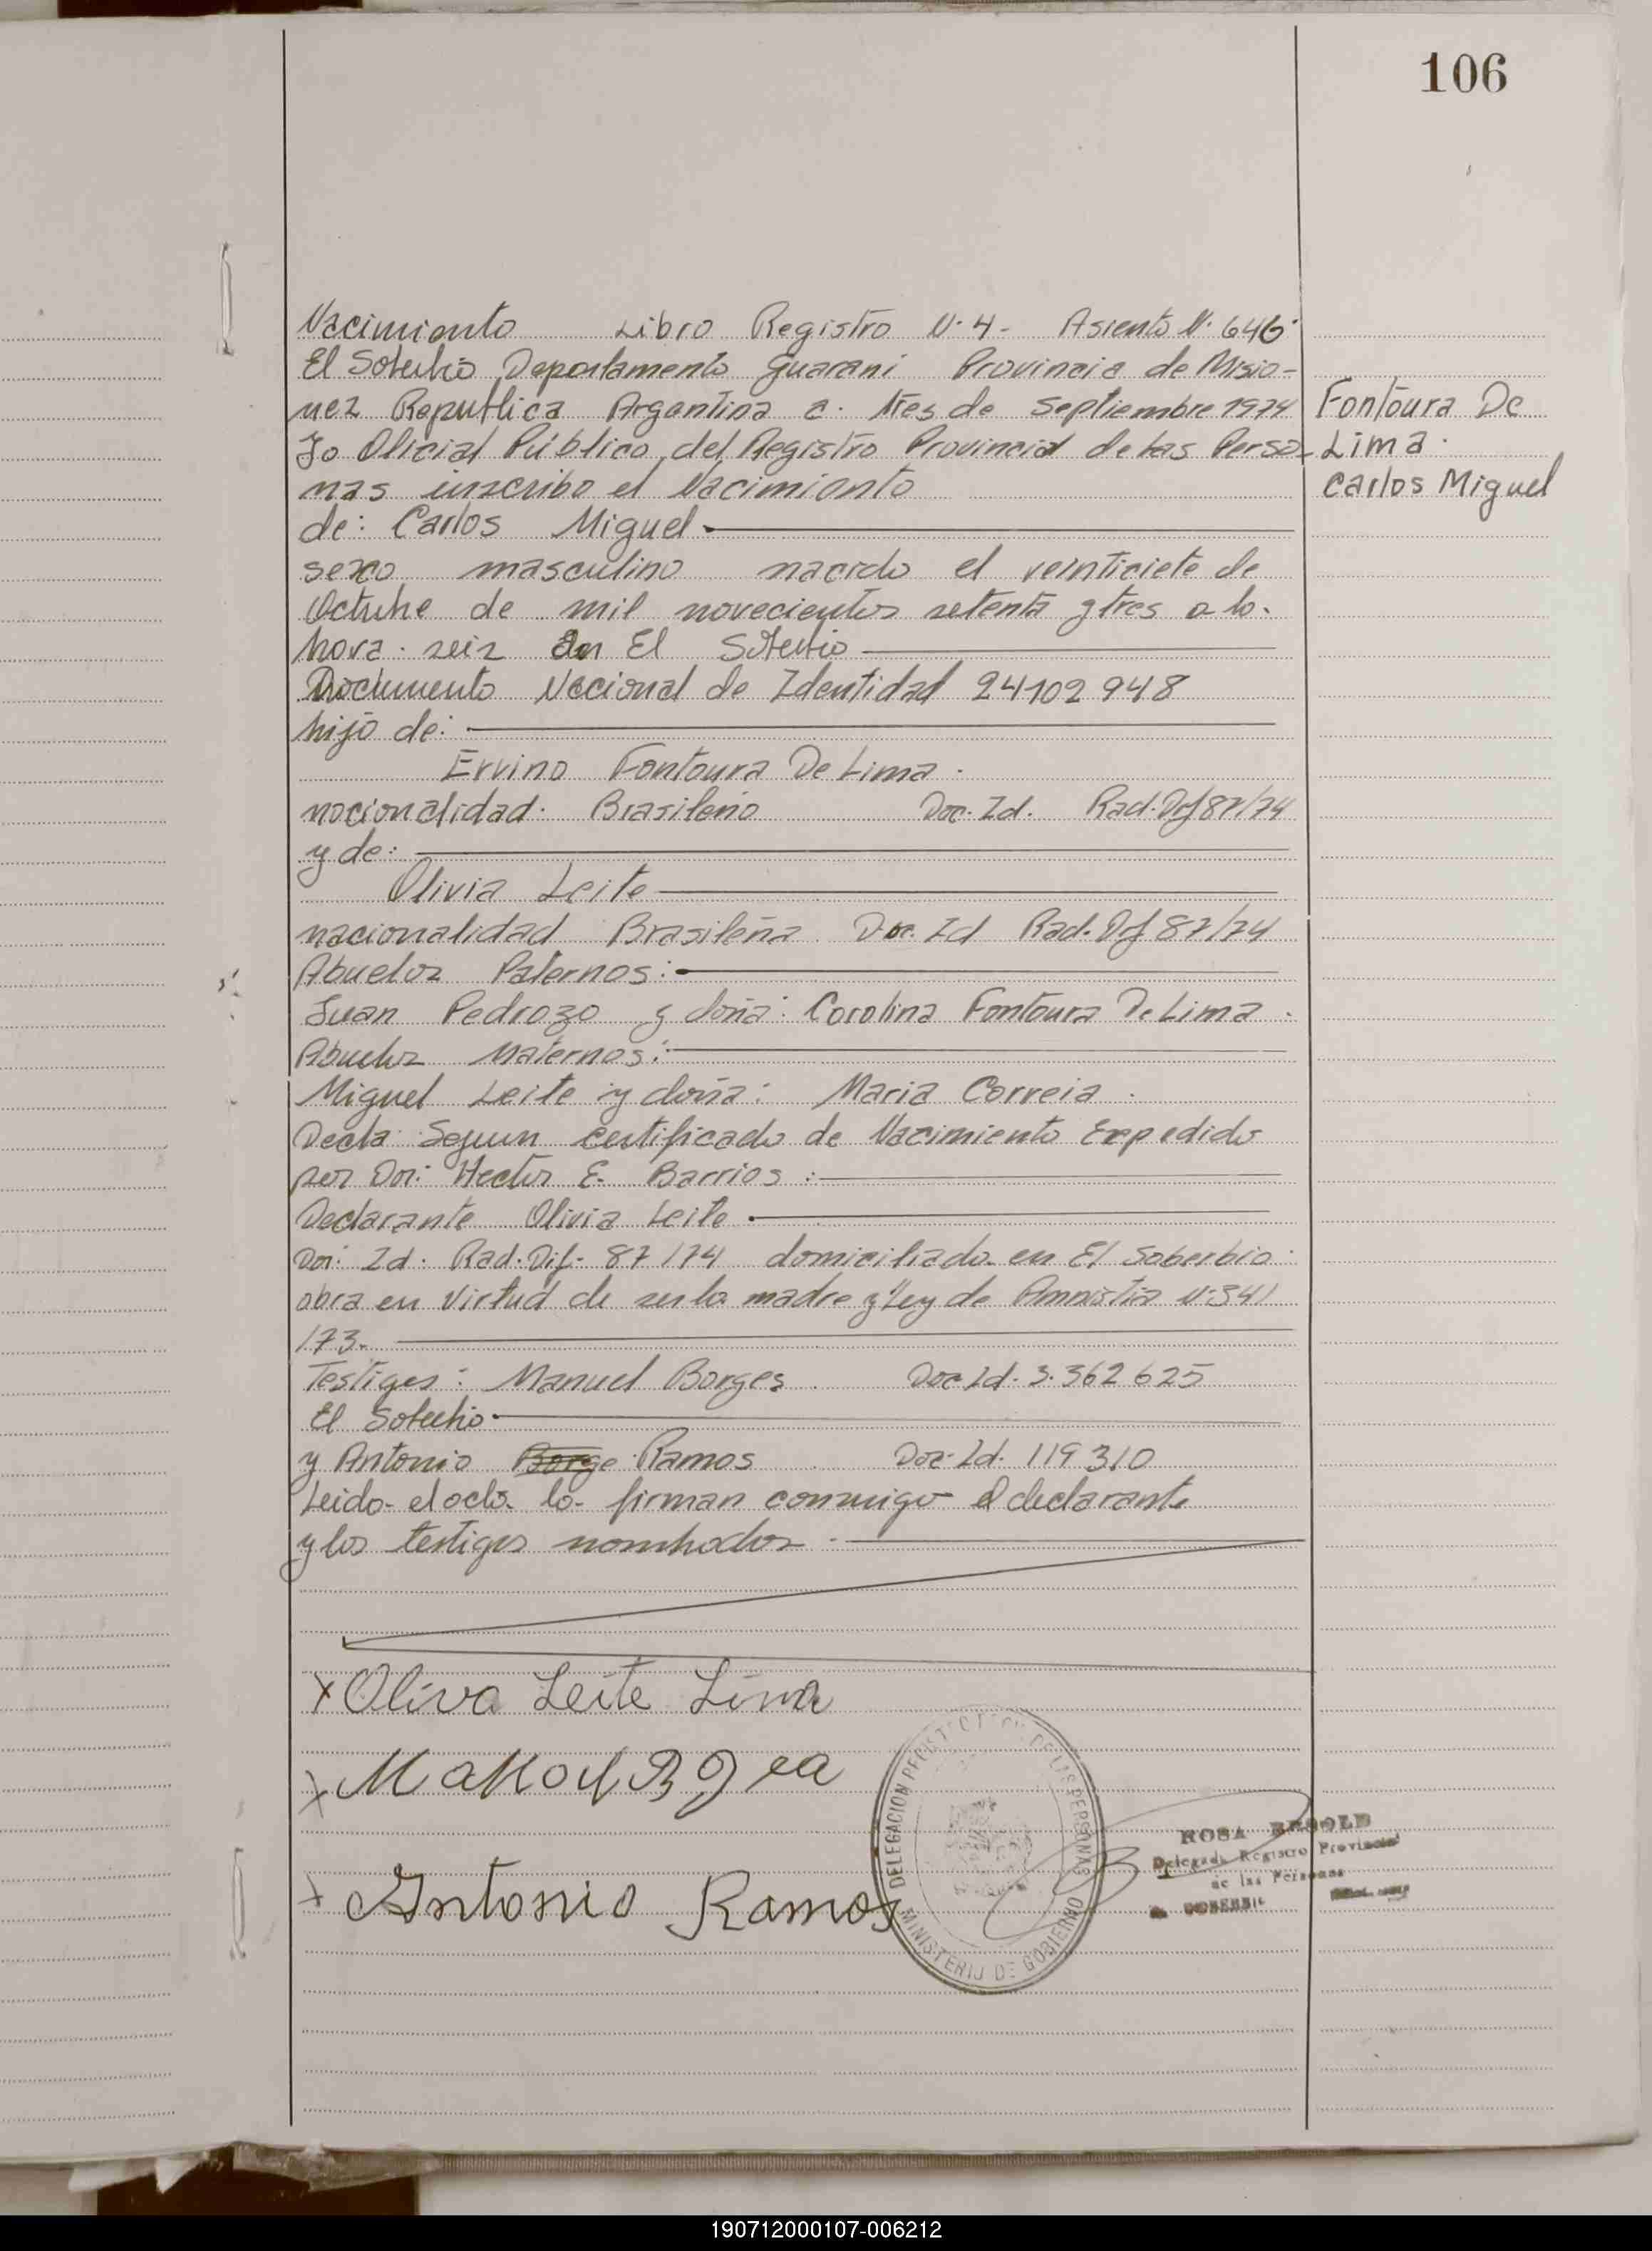 106
Nacimiento Libro Registro N. 4 - Asiento N. 646
El Soberbio Departamento Guarani Provincia de Misio-
nez Republica Argentina a. tres de Septiembre 1974
Yo Oficial Público del Registro Provincial de las Perso-
nas inscribo el Nacimiento
Fontoura De
Lima.
Carlos Miguel
de: Carlos Miguel
sexo masculino nacido el veinticiete de
Octubre de mil novecientos setenta y tres a la.
hora. seiz En El Soberbio
Documento Nacional de Identidad 24102948
hijo de:
Ervino Fontoura De Lima.
nacionalidad. Brasileño Doc. Id. Rad. Dif 87/74
y de:
Olivia Leite
nacionalidad Brasileña Doc. Id Rad. Dif 87/74
Abueloz Paternos:
Juan Pedrozo y doña: Corolina Fontoura De Lima.
Abueloz Maternos:
Miguel Leite y doña: Maria Correia.
Decla Segun certificado de Nacimiento Expedido
por Hector E. Barrios:
Declarante Olivia Leite
Id. Rad. Dif. 87/74 domiciliada en El Soberbio.
obra en Virtud de ser la madre y Ley de Amnistia N. 341
173.
Testigos: Manuel Borges. Doc Id. 3.362625
El Soberbio
y Antonio Borge Ramos. Doc. Id. 119310
Leida el acta la firman conmigo el declarante
y los testigos nombrados.
x Oliva Leite Lima
x
x Antonio Ramos
DELEGACION REGISTRO DE LAS PERSONAS
MINISTERIO DE GOBIERNO
ROSA
Delegada Registro Provincial
de las Personas
190712000107-006212